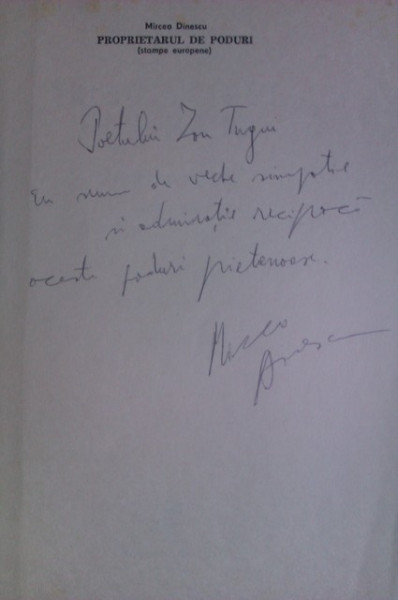 Mircea Dinescu
PROPRIETARUL DE PODURI
(stampe europene)
Poetului Ion Țugui
în semn de veche simpatie
și admirație reciprocă
aceste poduri prietenoase.
Mircea
Dinescu